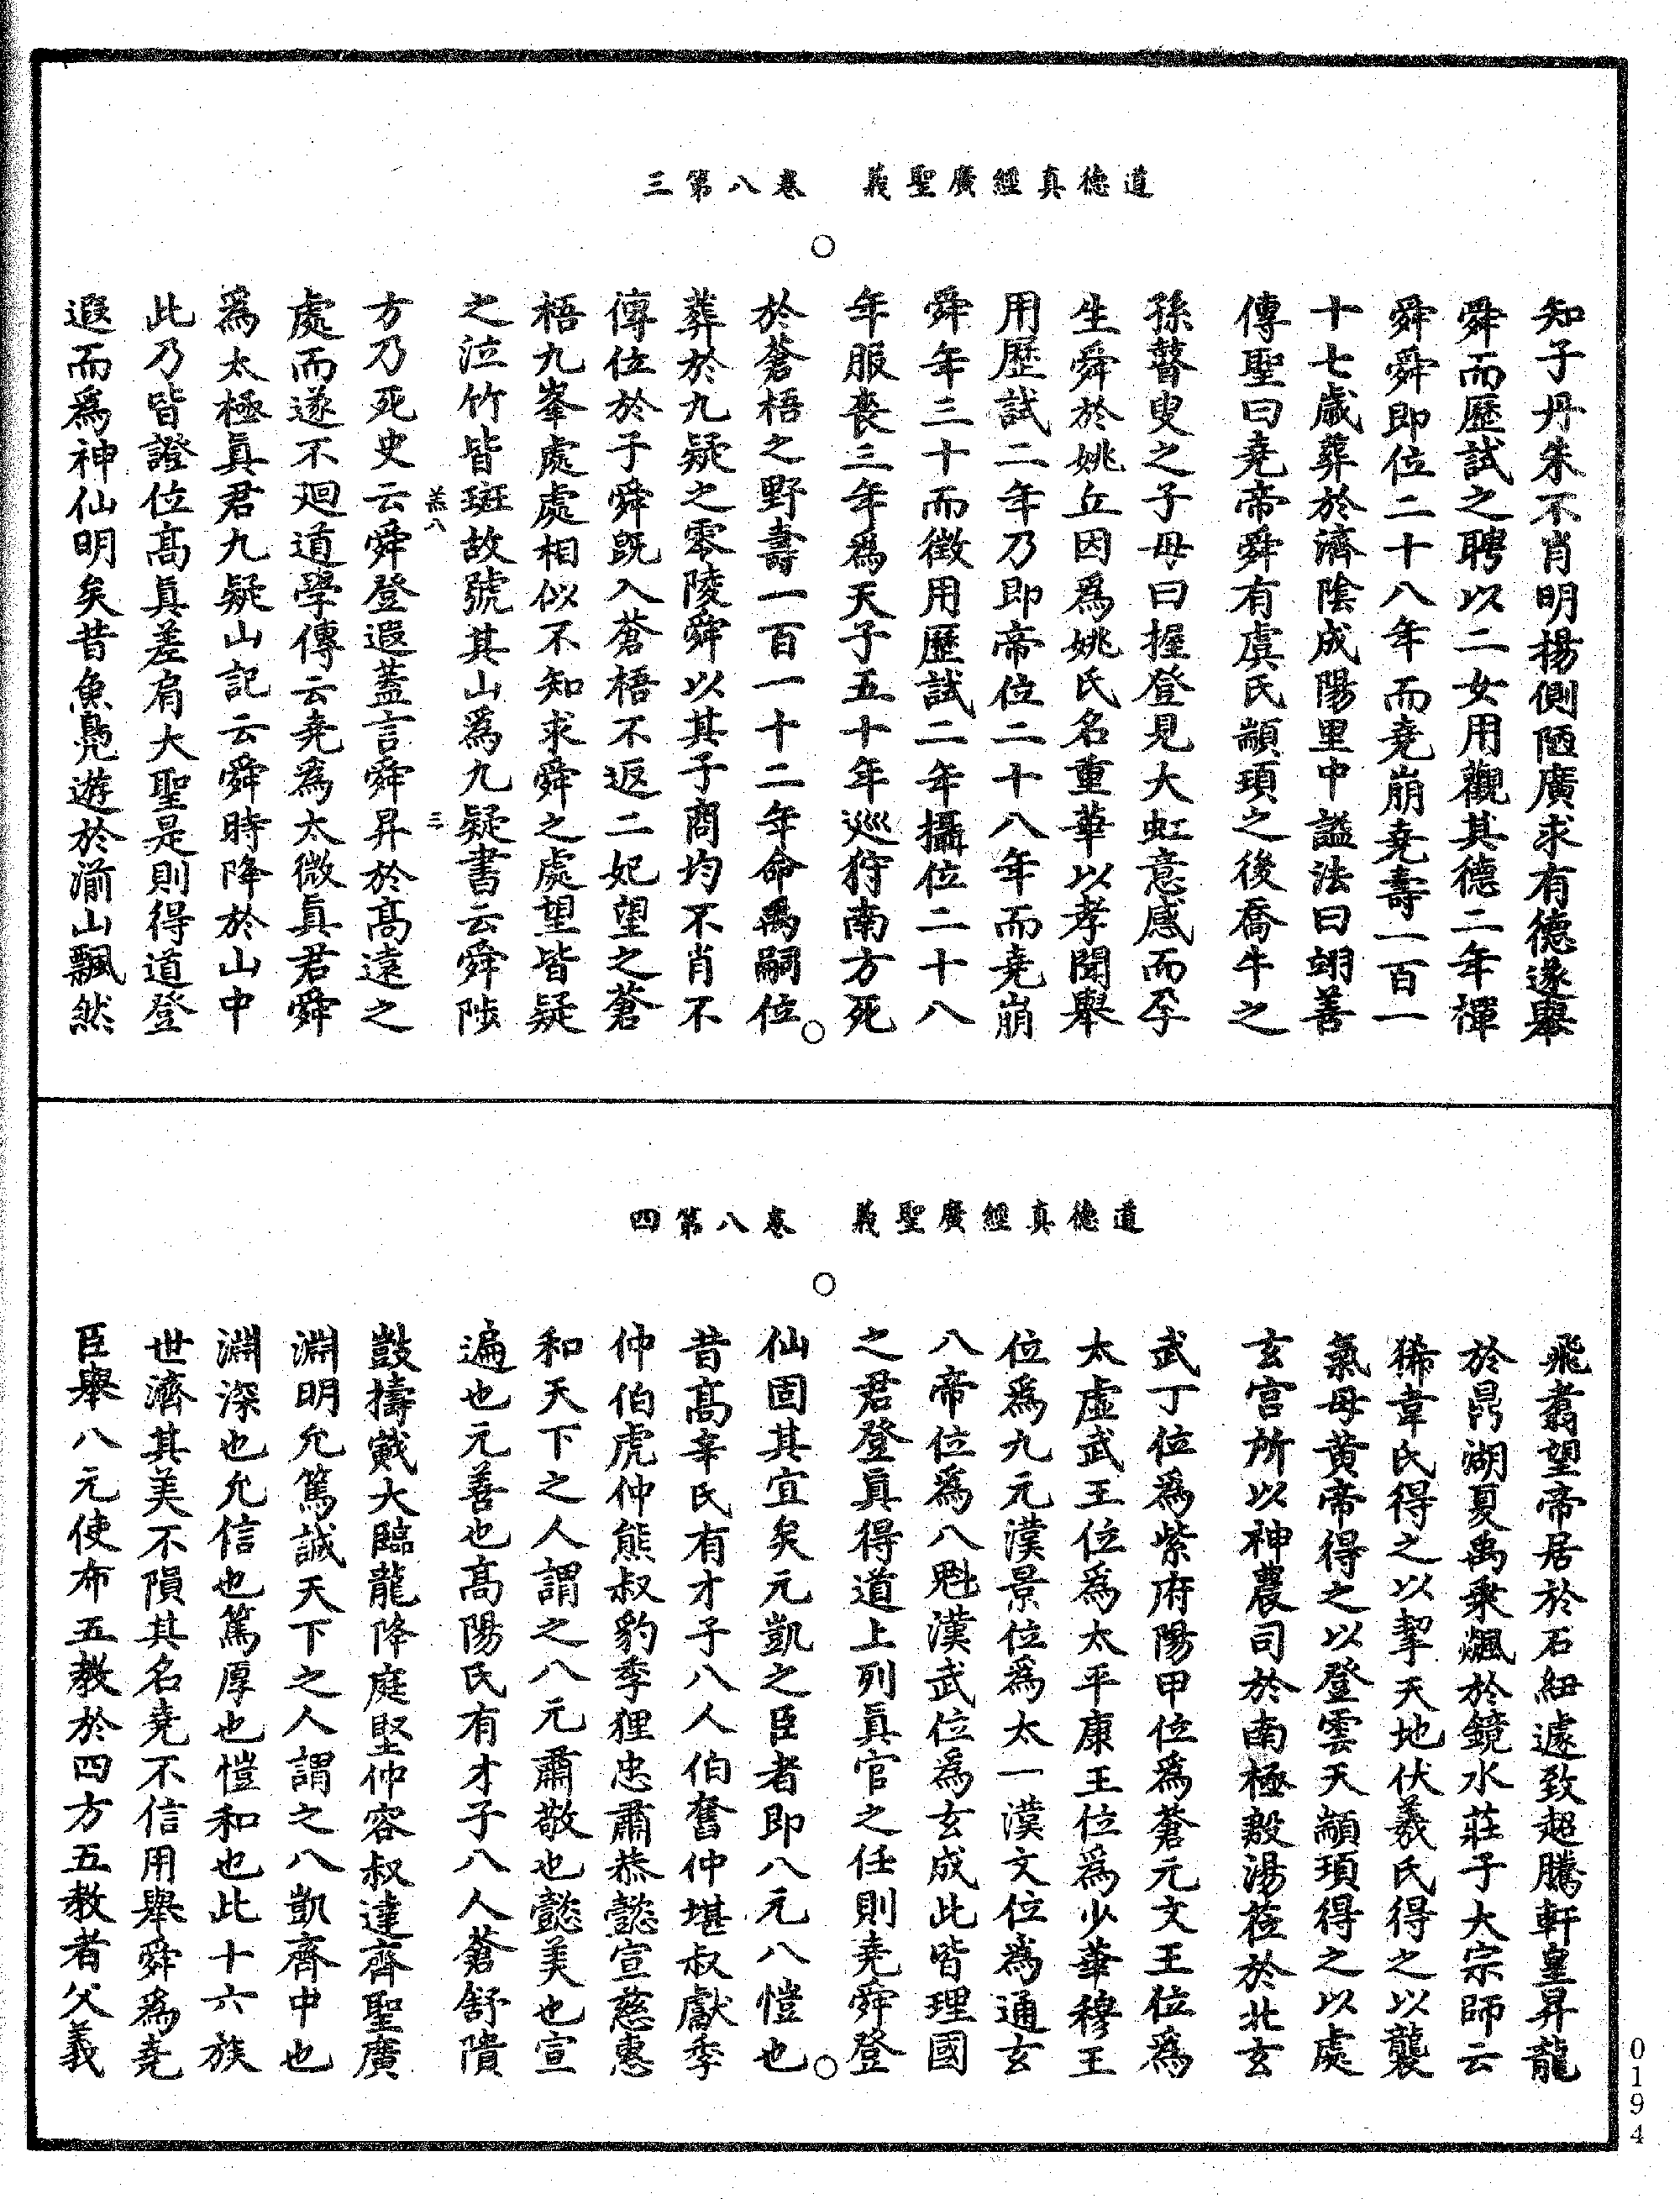 道德真經廣聖義　卷八第三
知子丹朱不肖明揚側陋廣求有德遂舉
舜而歷試之聘以二女用觀其德二年禪
舜舜即位二十八年而堯崩堯壽一百一
十七歲葬於濟陰成陽里中謚法曰翊善
傳聖曰堯帝舜有虞氏顓頊之後喬牛之
孫瞽叟之子母曰握登見大虹意感而孕
生舜於姚丘因為姚氏名重華以孝聞舉
用歷試二年乃即帝位二十八年而堯崩
舜年三十而徵用歷試二年攝位二十八
年服喪三年為天子五十年巡狩南方死
於蒼梧之野壽一百一十二年命禹嗣位
葬於九疑之零陵舜以其子商均不肖不
傳位於子舜既入蒼梧不返二妃望之蒼
梧九峯處處相似不知求舜之處望皆疑
之泣竹皆斑故號其山為九疑書云舜陟
羔八　三
方乃死史云舜登遐蓋言舜昇於髙遠之
處而遂不迴道學傳云堯為太微真君舜
為太極真君九疑山記云舜時降於山中
此乃皆證位髙真差肩大聖是則得道登
遐而為神仙明矣昔魚鳧遊於湔山飄然
道德真經廣聖義　卷八第四
飛翥望帝居於石紐遽致超騰軒皇昇龍
於鼎湖夏禹乘飈於鏡水莊子大宗師云
狶韋氏得之以挈天地伏羲氏得之以襲
氣母黃帝得之以登雲天顓頊得之以處
玄宮所以神農司於南極殷湯莅於北玄
武丁位為紫府陽甲位為蒼元文王位為
太虛武王位為太平康王位為少華穆王
位為九元漢景位為太一漢文位為通玄
八帝位為八魁漢武位為玄成此皆理國
之君登真得道上列真官之任則堯舜登
仙固其宜矣元凱之臣者即八元八愷也
昔髙辛氏有才子八人伯奮仲堪叔獻季
仲伯虎仲熊叔豹季狸忠肅恭懿宣慈惠
和天下之人謂之八元肅敬也懿美也宣
遍也元善也髙陽氏有才子八人蒼舒隤
敱擣戭大臨龍降庭堅仲容叔達齊聖廣
淵明允篤誠天下之人謂之八凱齊中也
淵深也允信也篤厚也愷和也此十六族
世濟其美不隕其名堯不信用舉舜為堯
臣舉八元使布五教於四方五教者父義
0194